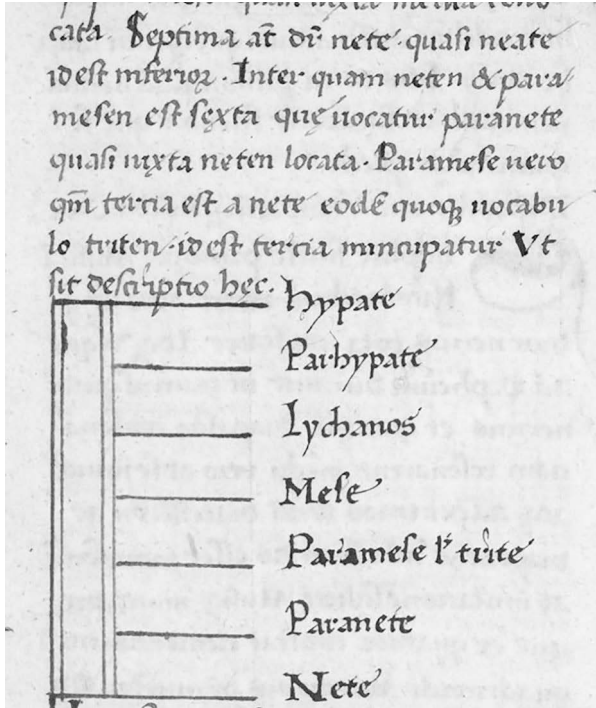 quam iuxta media
cata. Septima aut̄ dr̄ nete quasi neate
idest inferior. Inter quam neten & para
mesen est sexta que uocatur paranete
quasi iuxta neten locata. Paramese uero
qm̄ tercia est a nete eodē quoq; uocabu
lo triten idest tercia nuncupatur Vt
sit descriptio hec.
hypate
Parhypate
Lychanos
Mese
Paramese l' trite
Paranete
Nete